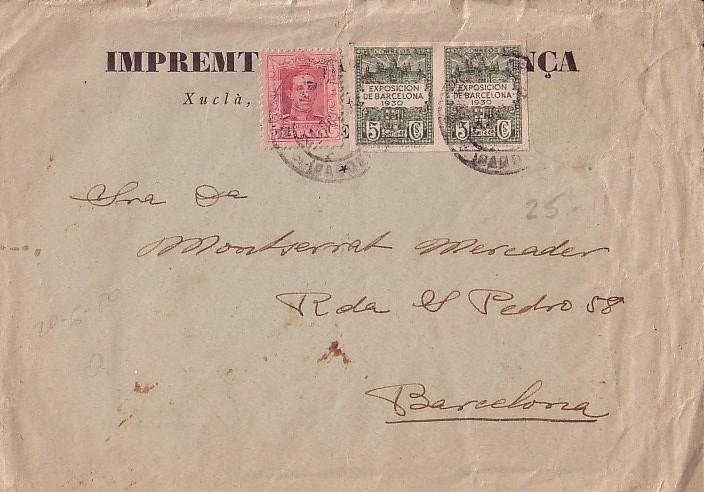 IMPREMT NÇA
Xuclà,
CORREOS
EXPOSICION
DE BARCELONA
1930
5 CTS
EXPOSICION
DE BARCELONA
1930
5 CTS
25-
Sra Da
Montserrat Mercader
Rda S Pedro 58
Barcelona